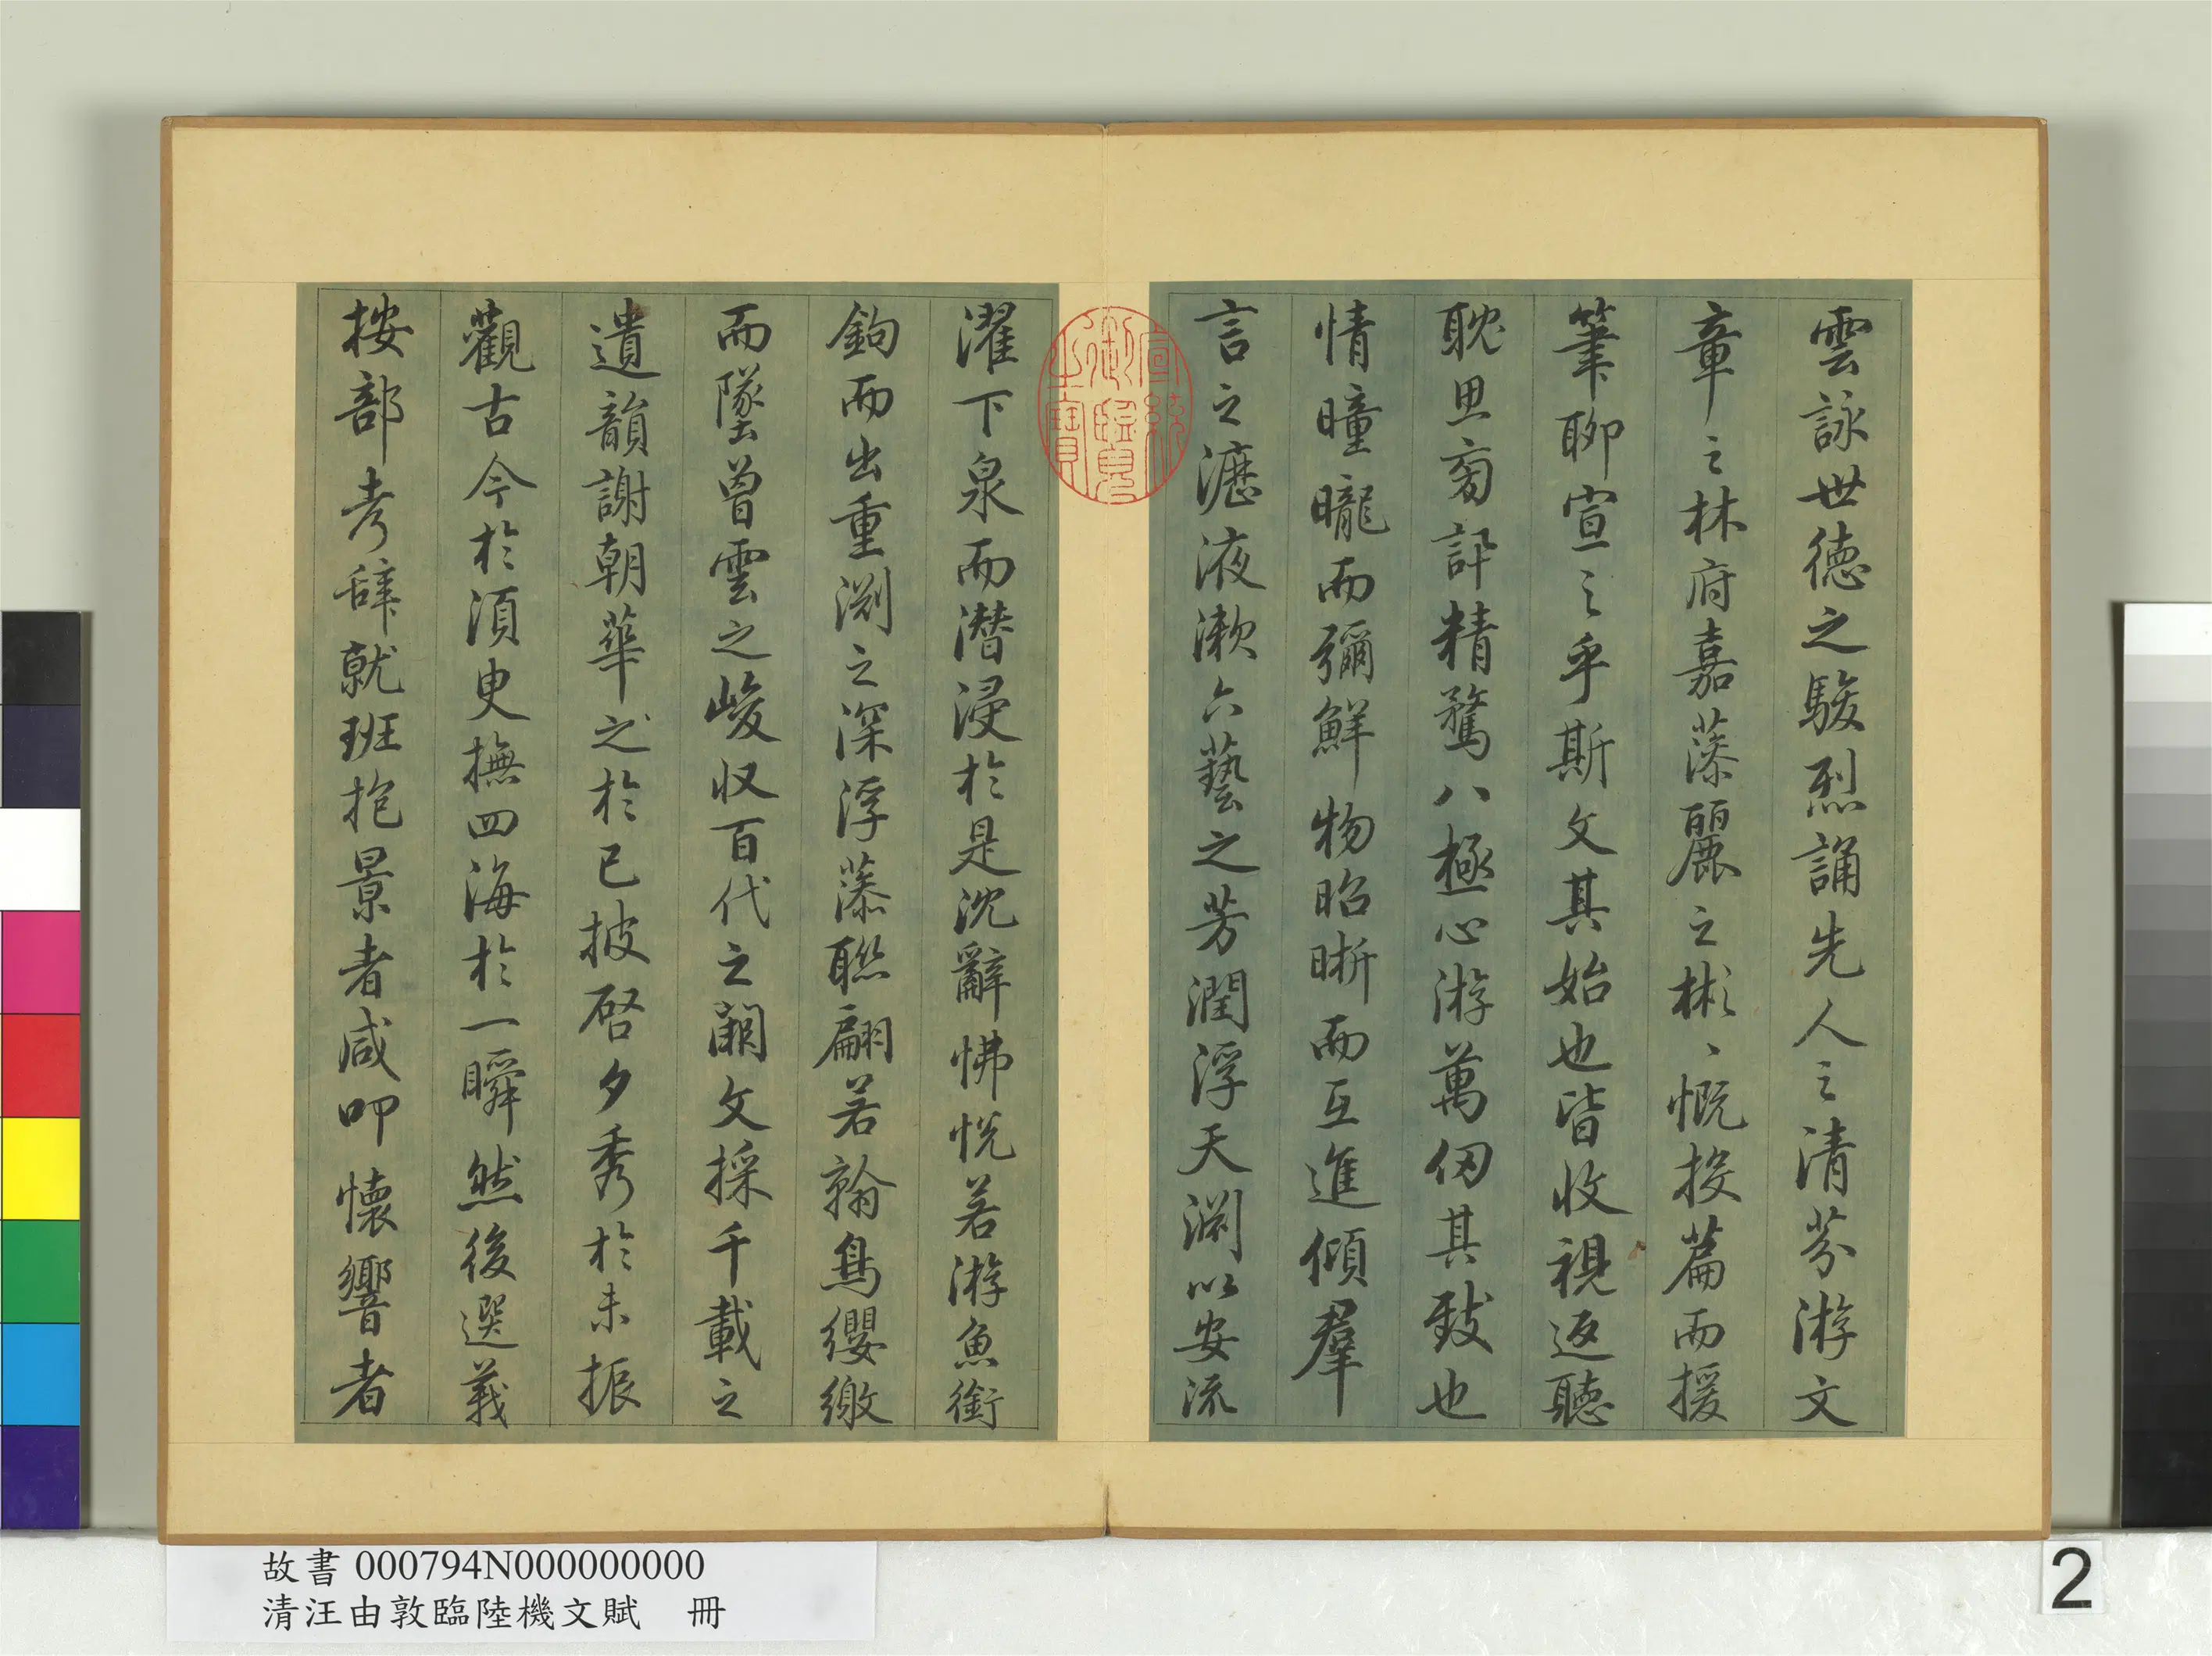 雲詠世德之駿烈誦先人之清芬游文
章之林府嘉藻麗之彬、慨投篇而援
筆聊宣之乎斯文其始也皆收視返聽
耽思匊訊精騖八極心游萬仞其致也
情曈曨而彌鮮物昭晰而互進傾羣
言之瀝液漱六藝之芳潤浮天渊以安流
濯下泉而潛浸於是沈辭怫恱若游魚銜
鉤而出重渊之深浮藻聮翩若翰鳥纓繳
而墜曾雲之峻収百代之闕文採千載之
遺韻謝朝華之於已披啓夕秀於未振
觀古今於須臾撫四海於一瞬然後選義
按部考辭就班抱景者咸叩懷響者
宣統御覽之寶
故書 000794N000000000
清汪由敦臨陸機文賦 冊
2